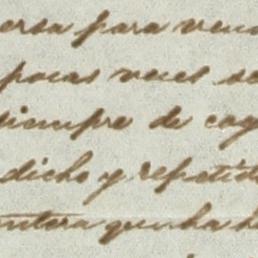 ersa para venc
pocas veces se
siempre de cog
dicho y repetid
entera que ha h